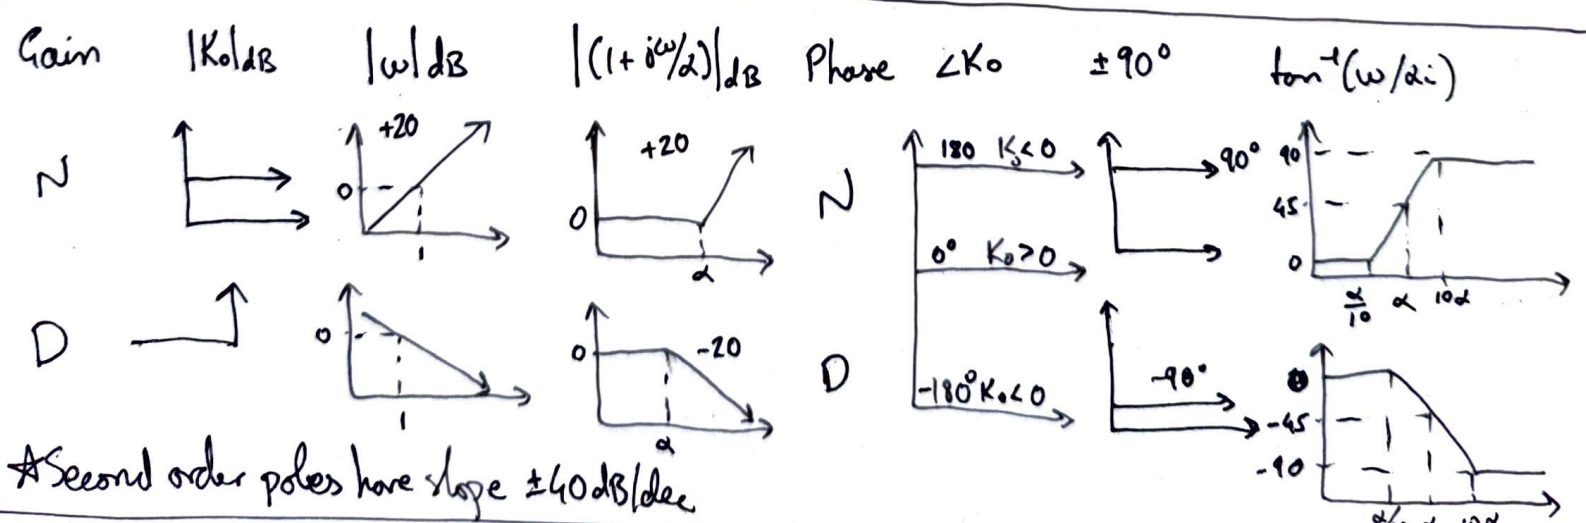 Gain |K₀|dB |ω|dB |(1+jω/α)|dB Phase ∠K₀ ±90° tan⁻¹(ω/αi)
N +20 0 1 +20 0 α N 180 K₀<0 0° K₀>0 90° 90 45 0 α/10 α 10α
D 0 1 0 -20 α D -180° K₀<0 -90° 0 -45 -90 α 10α
☆Second order poles have slope ±40dB/dec